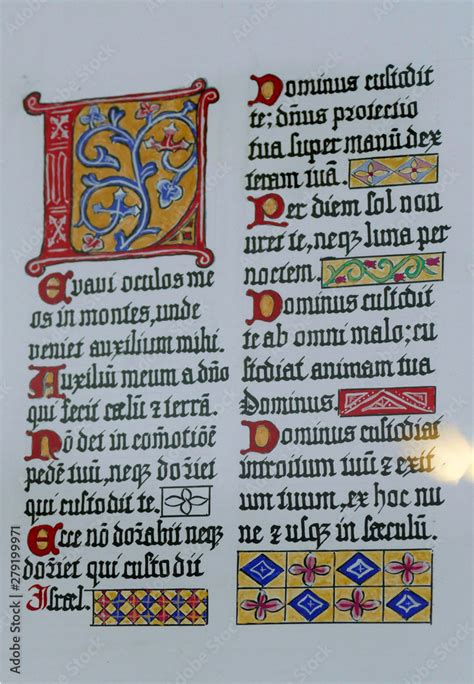 L
Evavi oculos me
os in montes, unde
veniet auxilium mihi.
Auxiliū meum a dño
qui fecit cælū ⁊ terrā.
Nō det in com̄otiōē
pedē tuū, neqꝫ dor̄iet
qui custodit te.
Ecce nō dor̄abit neqꝫ
dor̄iet qui custodit
Isræl.
Dominus custodit
te; dn̄us protectio
tua super manū dex
teram tuā.
Per diem sol non
uret te, neqꝫ luna per
noctem.
Dominus custodit
te ab omni malo; cu
stodiat animam tua
Dominus.
Dominus custodiat
introitum tuū ⁊ exit
um tuum, ex hoc nu
nc ⁊ usqꝫ in sæculū.
Adobe Stock | #279199971